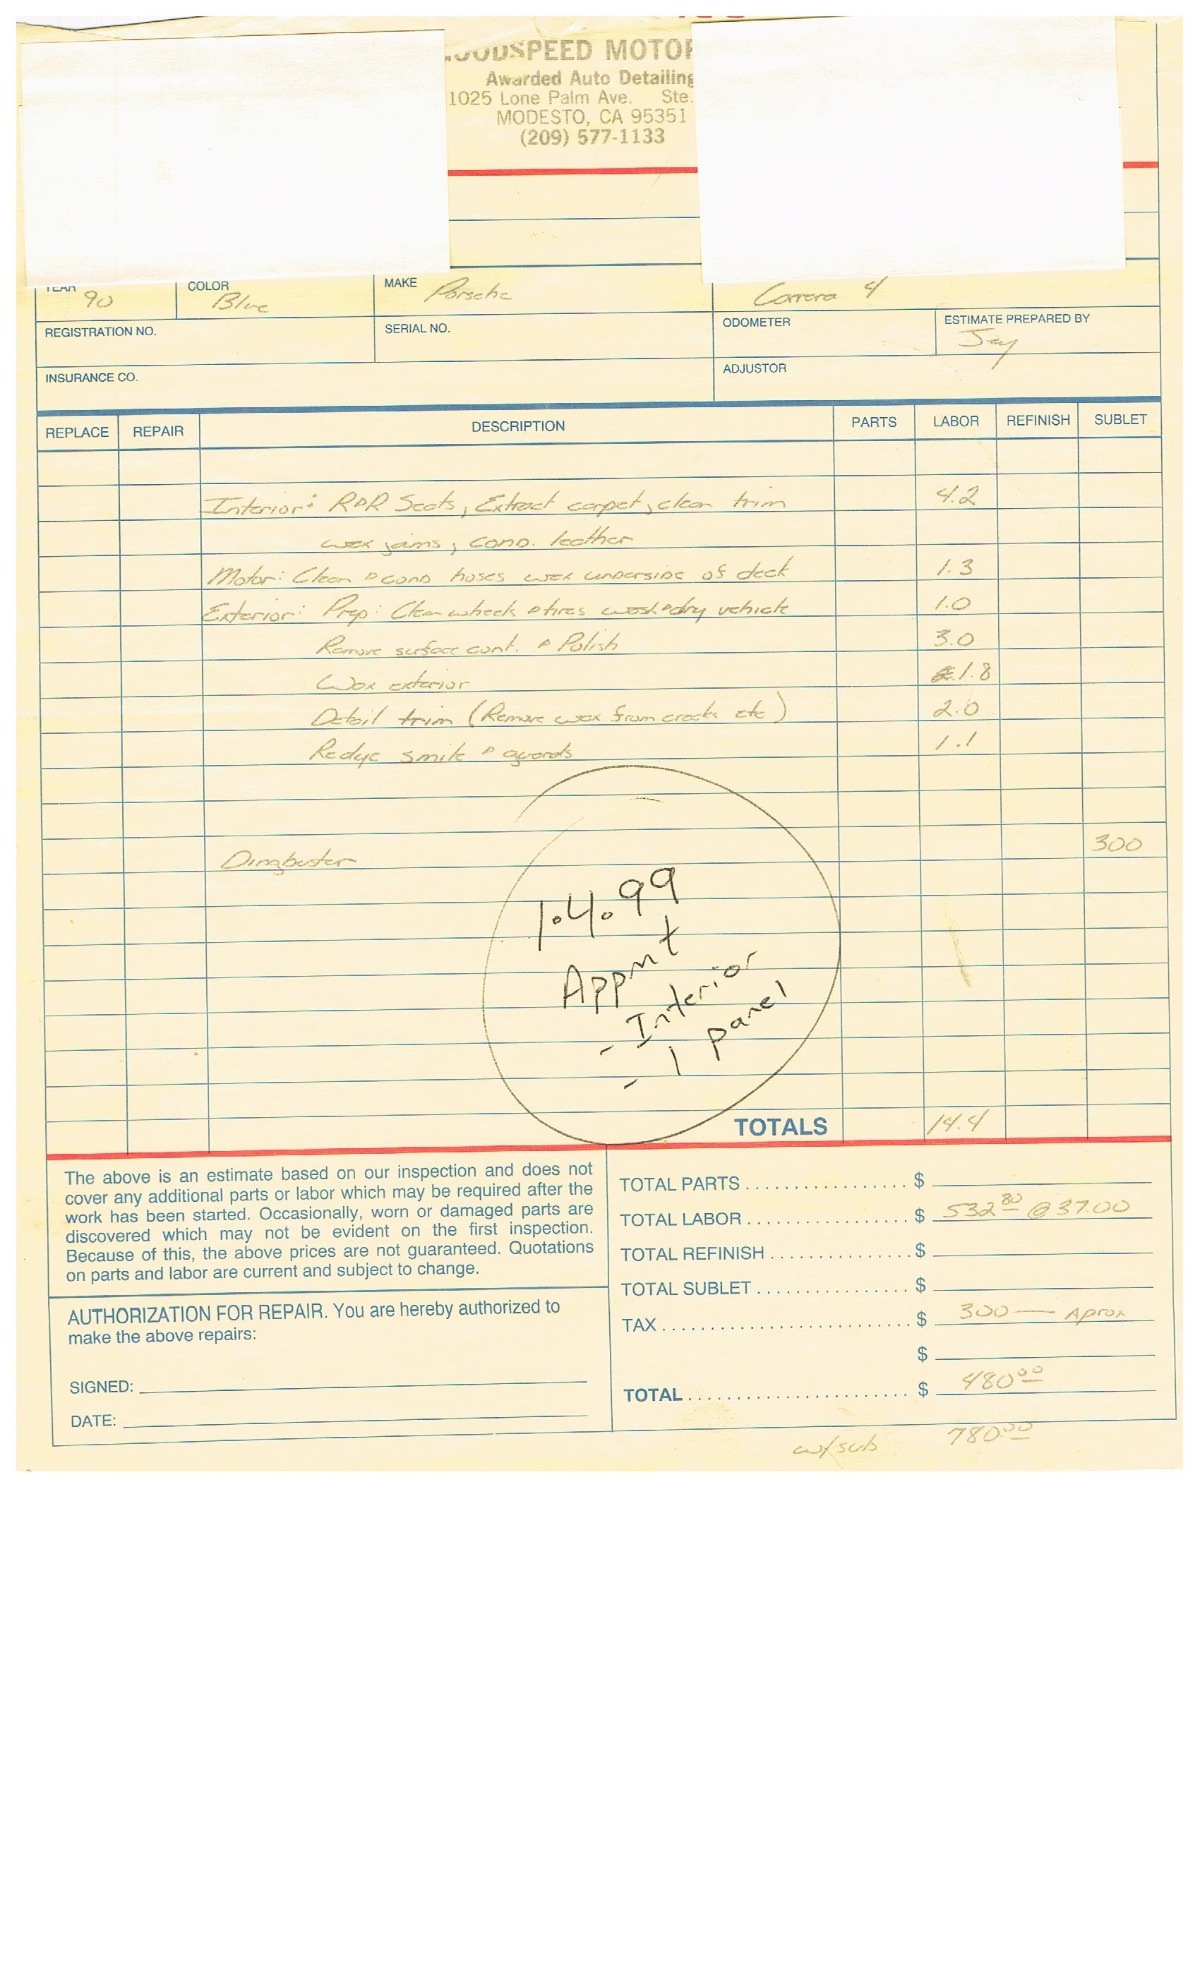 OODSPEED MOTOR
Awarded Auto Detailing
1025 Lone Palm Ave. Ste.
MODESTO, CA 95351
(209) 577-1133
YEAR COLOR MAKE
90 Blue Porsche Carrera 4
REGISTRATION NO. SERIAL NO. ODOMETER ESTIMATE PREPARED BY
Jay
INSURANCE CO. ADJUSTOR
REPLACE REPAIR DESCRIPTION PARTS LABOR REFINISH SUBLET
Interior: R&R Seats, Extract carpet, clean trim 4.2
wax jams, cond. leather
Motor: Clean & cond hoses wax underside of deck 1.3
Exterior: Prep: Clean wheels & tires wash & dry vehicle 1.0
Remove surface cont. & Polish 3.0
Wax exterior 1.8
Detail trim (Remove wax from cracks etc) 2.0
Redye smile & guards 1.1
Dingbuster 300
1.4.99
Appmt
- Interior
- 1 panel
TOTALS 14.4
The above is an estimate based on our inspection and does not
cover any additional parts or labor which may be required after the
work has been started. Occasionally, worn or damaged parts are
discovered which may not be evident on the first inspection.
Because of this, the above prices are not guaranteed. Quotations
on parts and labor are current and subject to change.
AUTHORIZATION FOR REPAIR. You are hereby authorized to
make the above repairs:
SIGNED:
DATE:
TOTAL PARTS $
TOTAL LABOR $ 532.80 @ 37.00
TOTAL REFINISH $
TOTAL SUBLET $
TAX $ 300 — Aprox
$
TOTAL $ 480.00
w/ sub 780.00